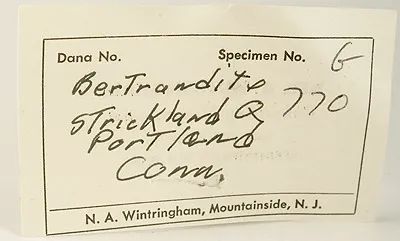 Dana No. Specimen No. G
Bertrandite 770
Strickland Q
Portland
Conn.
N. A. Wintringham, Mountainside, N. J.